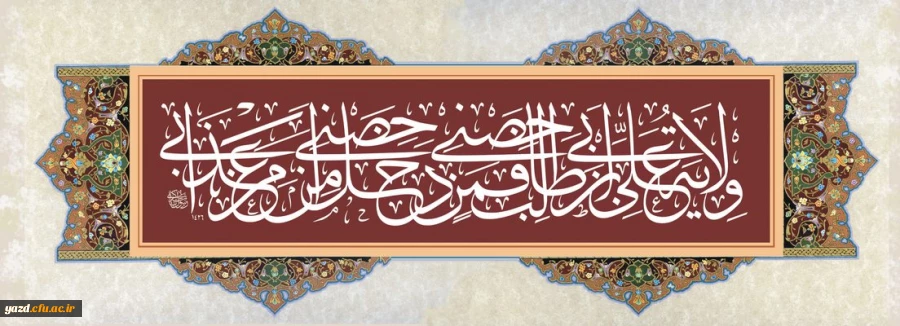 ولاية علي بن ابي طالب حصني فمن دخل حصني امن من عذابي
١٤٢٦
yazd.cfu.ac.ir